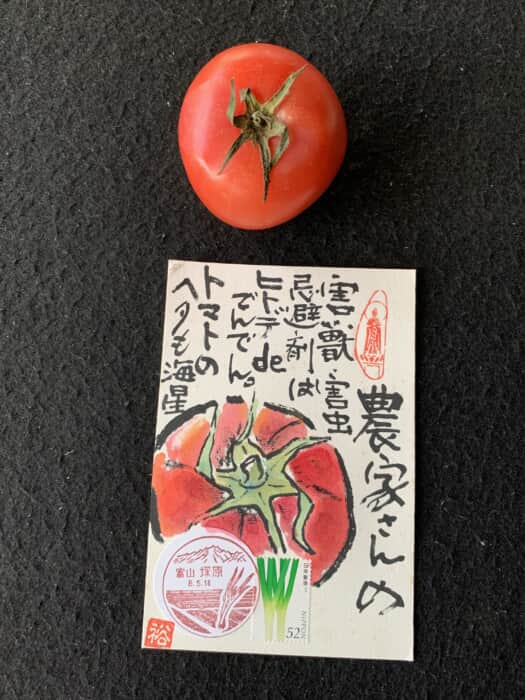 農家さんの
害獣・害虫
忌避剤は
ヒトデde
でんでん。
トマトの
ヘタも海星
富山 塚原
8.5.18
日本郵便
52
NIPPON
裕